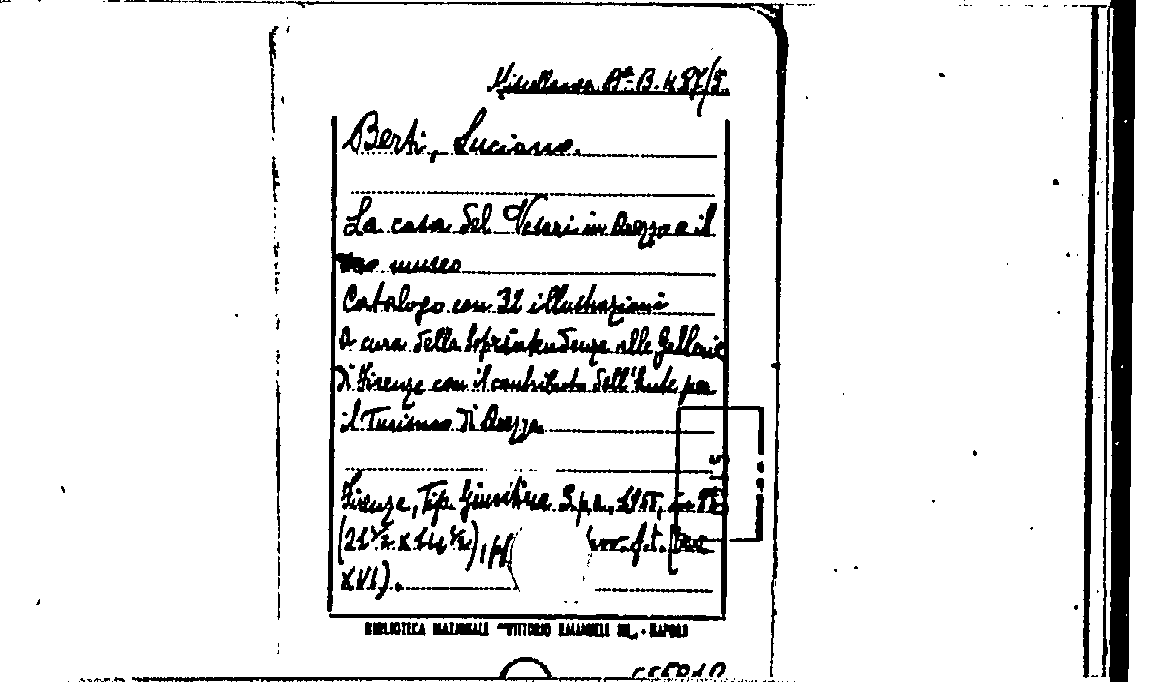 Miscellanea Bª B. 457/5.
Berti, Luciano.
La casa del Vasari in Arezzo e il
suo museo
Catalogo con 32 illustrazioni
A cura della Soprintendenza alle Gallerie
di Firenze con il contributo dell'Ente per
il Turismo di Arezzo.
Firenze, Tip. Giuntina S.p.a., 1955, in 8º
(21 ½ x 14 ½), pp. f.t. (tav.
XVI).
BIBLIOTECA NAZIONALE "VITTORIO EMANUELE III" - NAPOLI